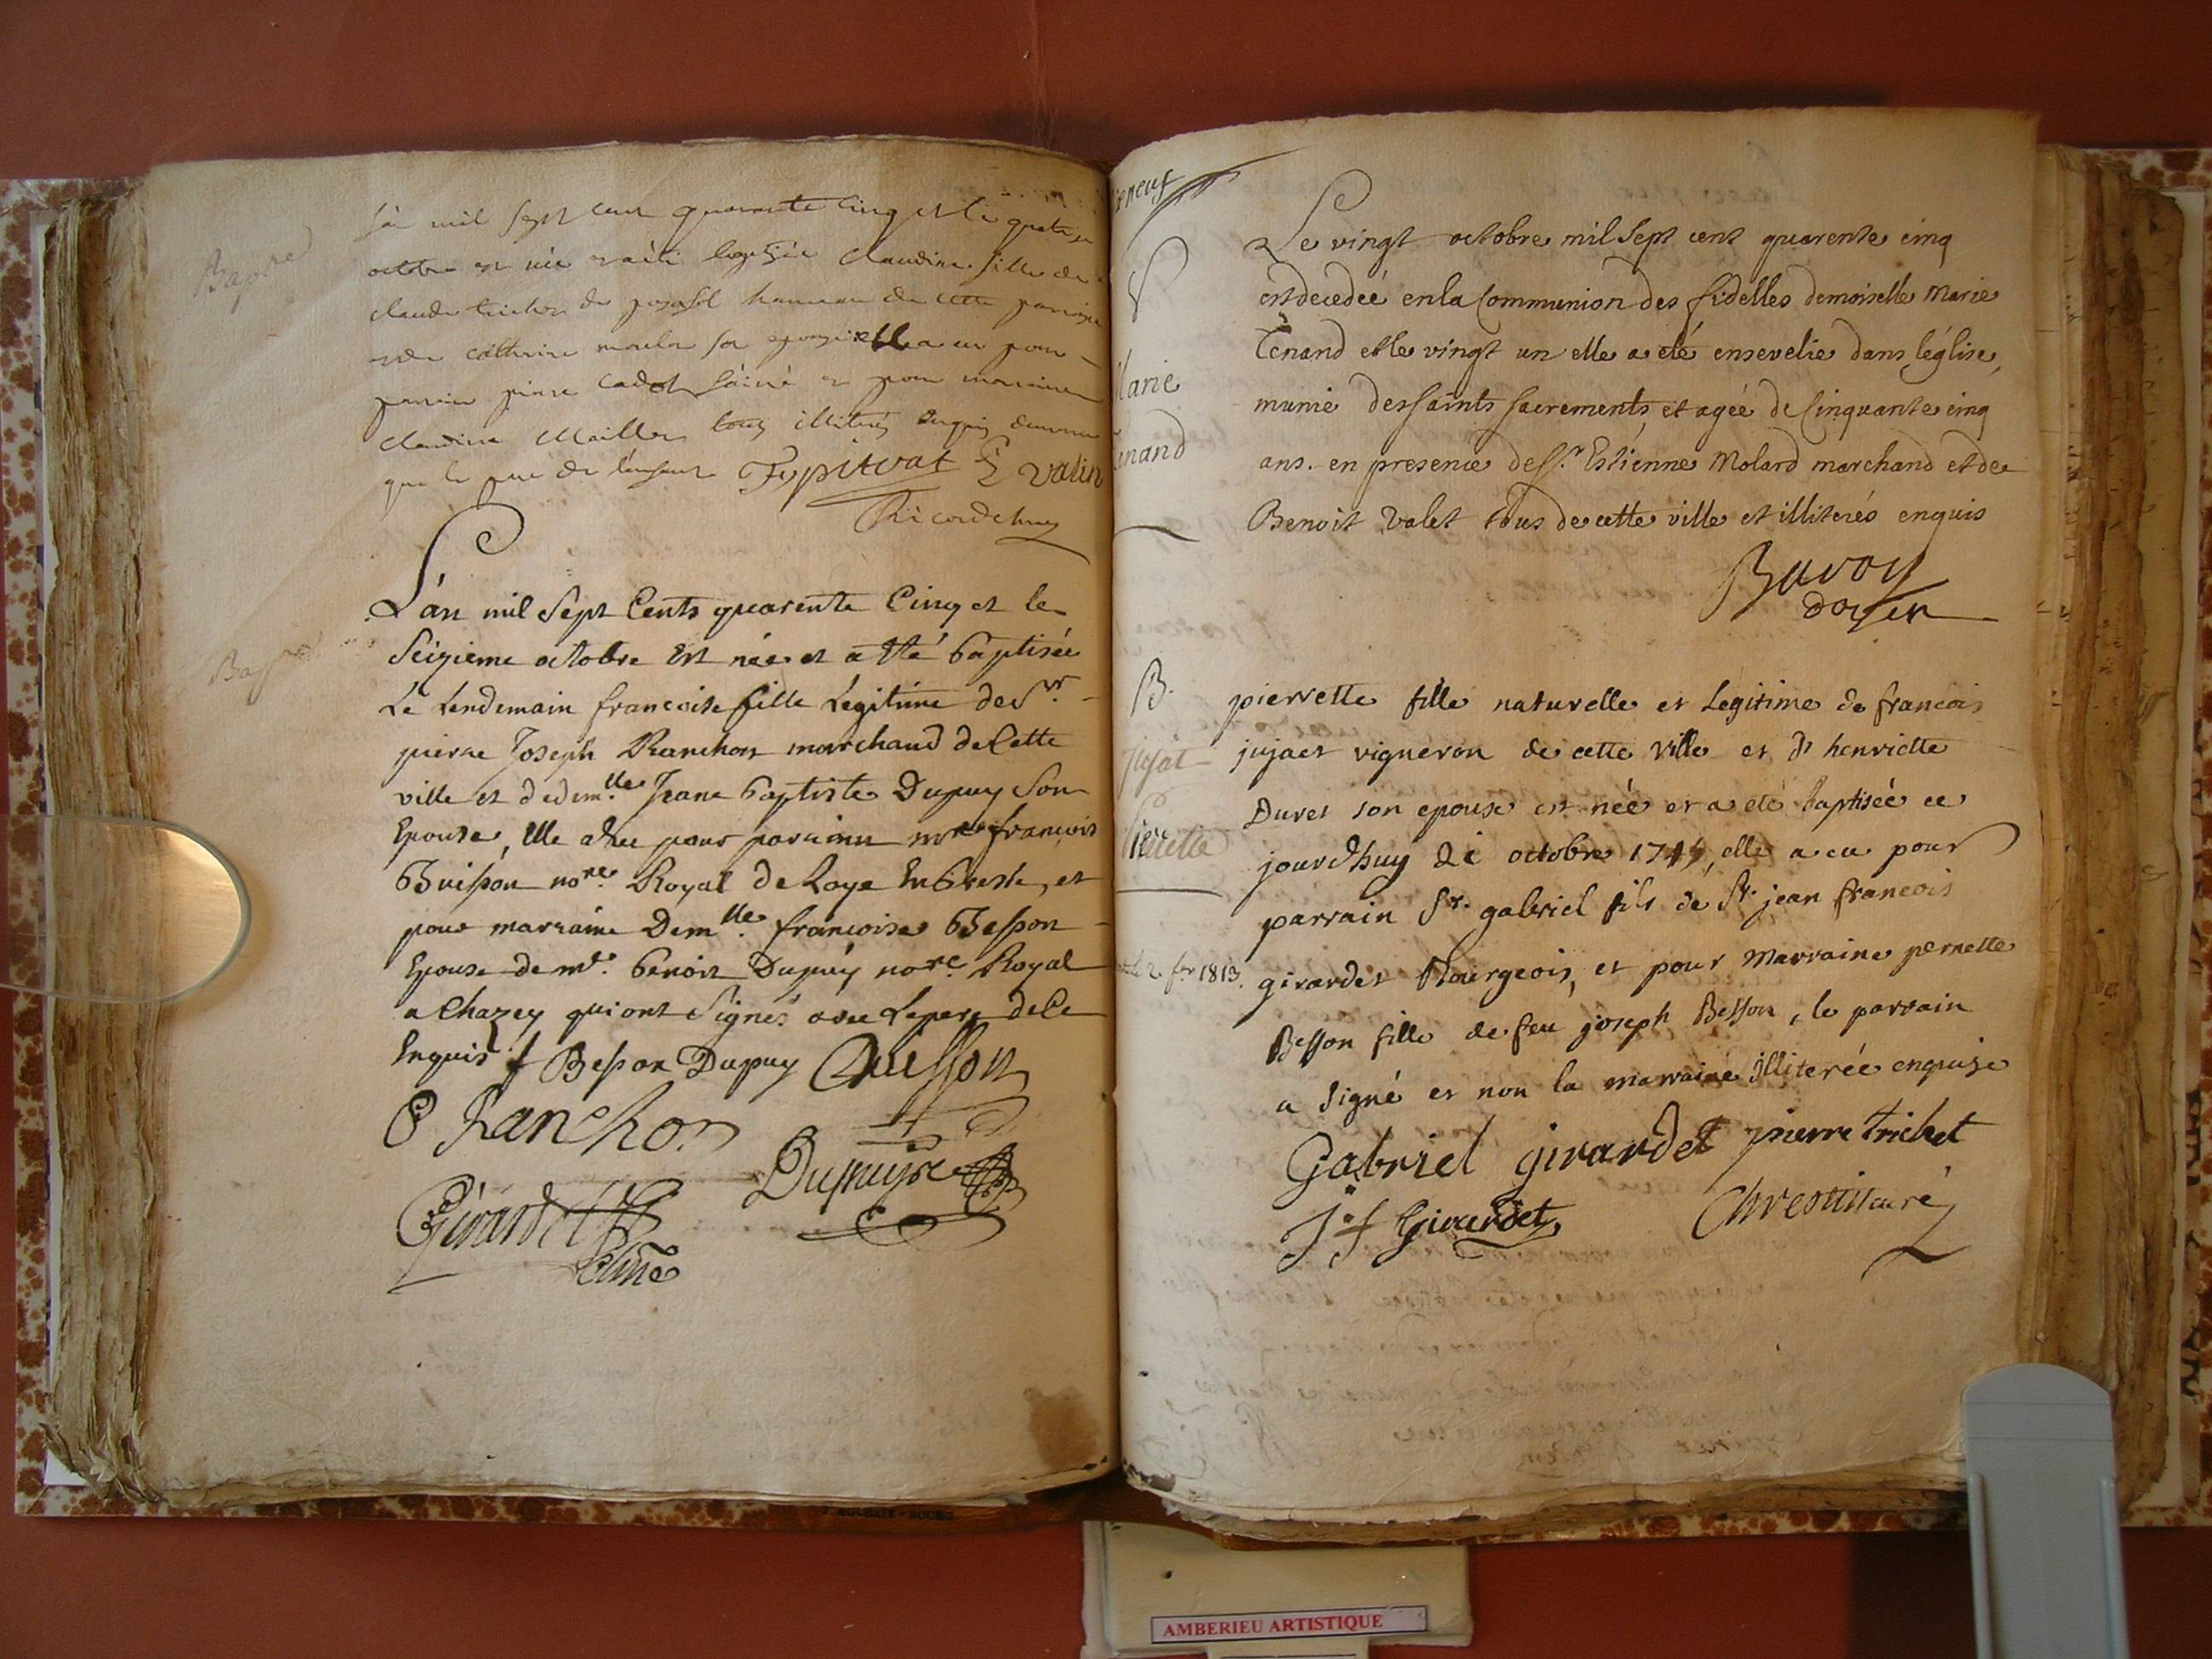 Bap.re
L'an mil sept cent quarante cinq et le
octobre est née et a été baptisée Claudine fille de
claude trichon de hameau de cette paroisse
et de catherine son epouse elle a eu pour
parrain pierre cadot l'ainé et pour marraine
claudine Mailler tous illiterés enquis
que le pere de l'enfant F. pitrat E vadin
Ricord
Bap
L'an mil Sept Cents quarente Cinq et le
Seizieme octobre Est née et a Eté baptisée
Le Lendemain francoise fille Légitime de Sr.
pierre Joseph Ranchon marchand de Cette
ville et de dem.lle Jeane baptiste Dupuy Son
Epouse, Elle a Eu pour parrain mre francois
Buisson nore. Royal de Loye En bresse, et
pour marraine Dem.lle francoise Besson
Epouse de me. benoit Dupuy nore. Royal
a Chazey qui ont Signés avec Le pere de Ce
Enquis f Besson Dupuy Buisson
P Ranchon
Dupuy
Girardet
neuf
Marie
Tenand
Le vingt octobre mil Sept cent quarente cinq
est decedeé en la Communion des fidelles demoiselle Marie
Tenand et le vingt un elle a eté ensevelie dans l'église,
munie des saints sacrements, et agée de Cinquante cinq
ans. en presence de Sr. Estienne Molard marchand et de
Benoit Valet tous de cette ville et illiterés enquis
Buvoy
doyen
B.
Jujat
Pierrette
pierrette fille naturelle et Legitime de francois
jujaet vigneron de cette ville et d'henriette
Duret son epouse est née et a eté baptisée ce
jourd'huy 21 octobre 1745, elle a eu pour
parrain Sr. gabriel fils de Sr. jean francois
2 fer 1813.
girardet Bourgeois, et pour Marraine pernette
Besson fille de feu joseph Besson, le parrain
a signé et non la marraine illiterée enquise
Gabriel girardet pierre trichet
J f Girardet curé
AMBERIEU ARTISTIQUE